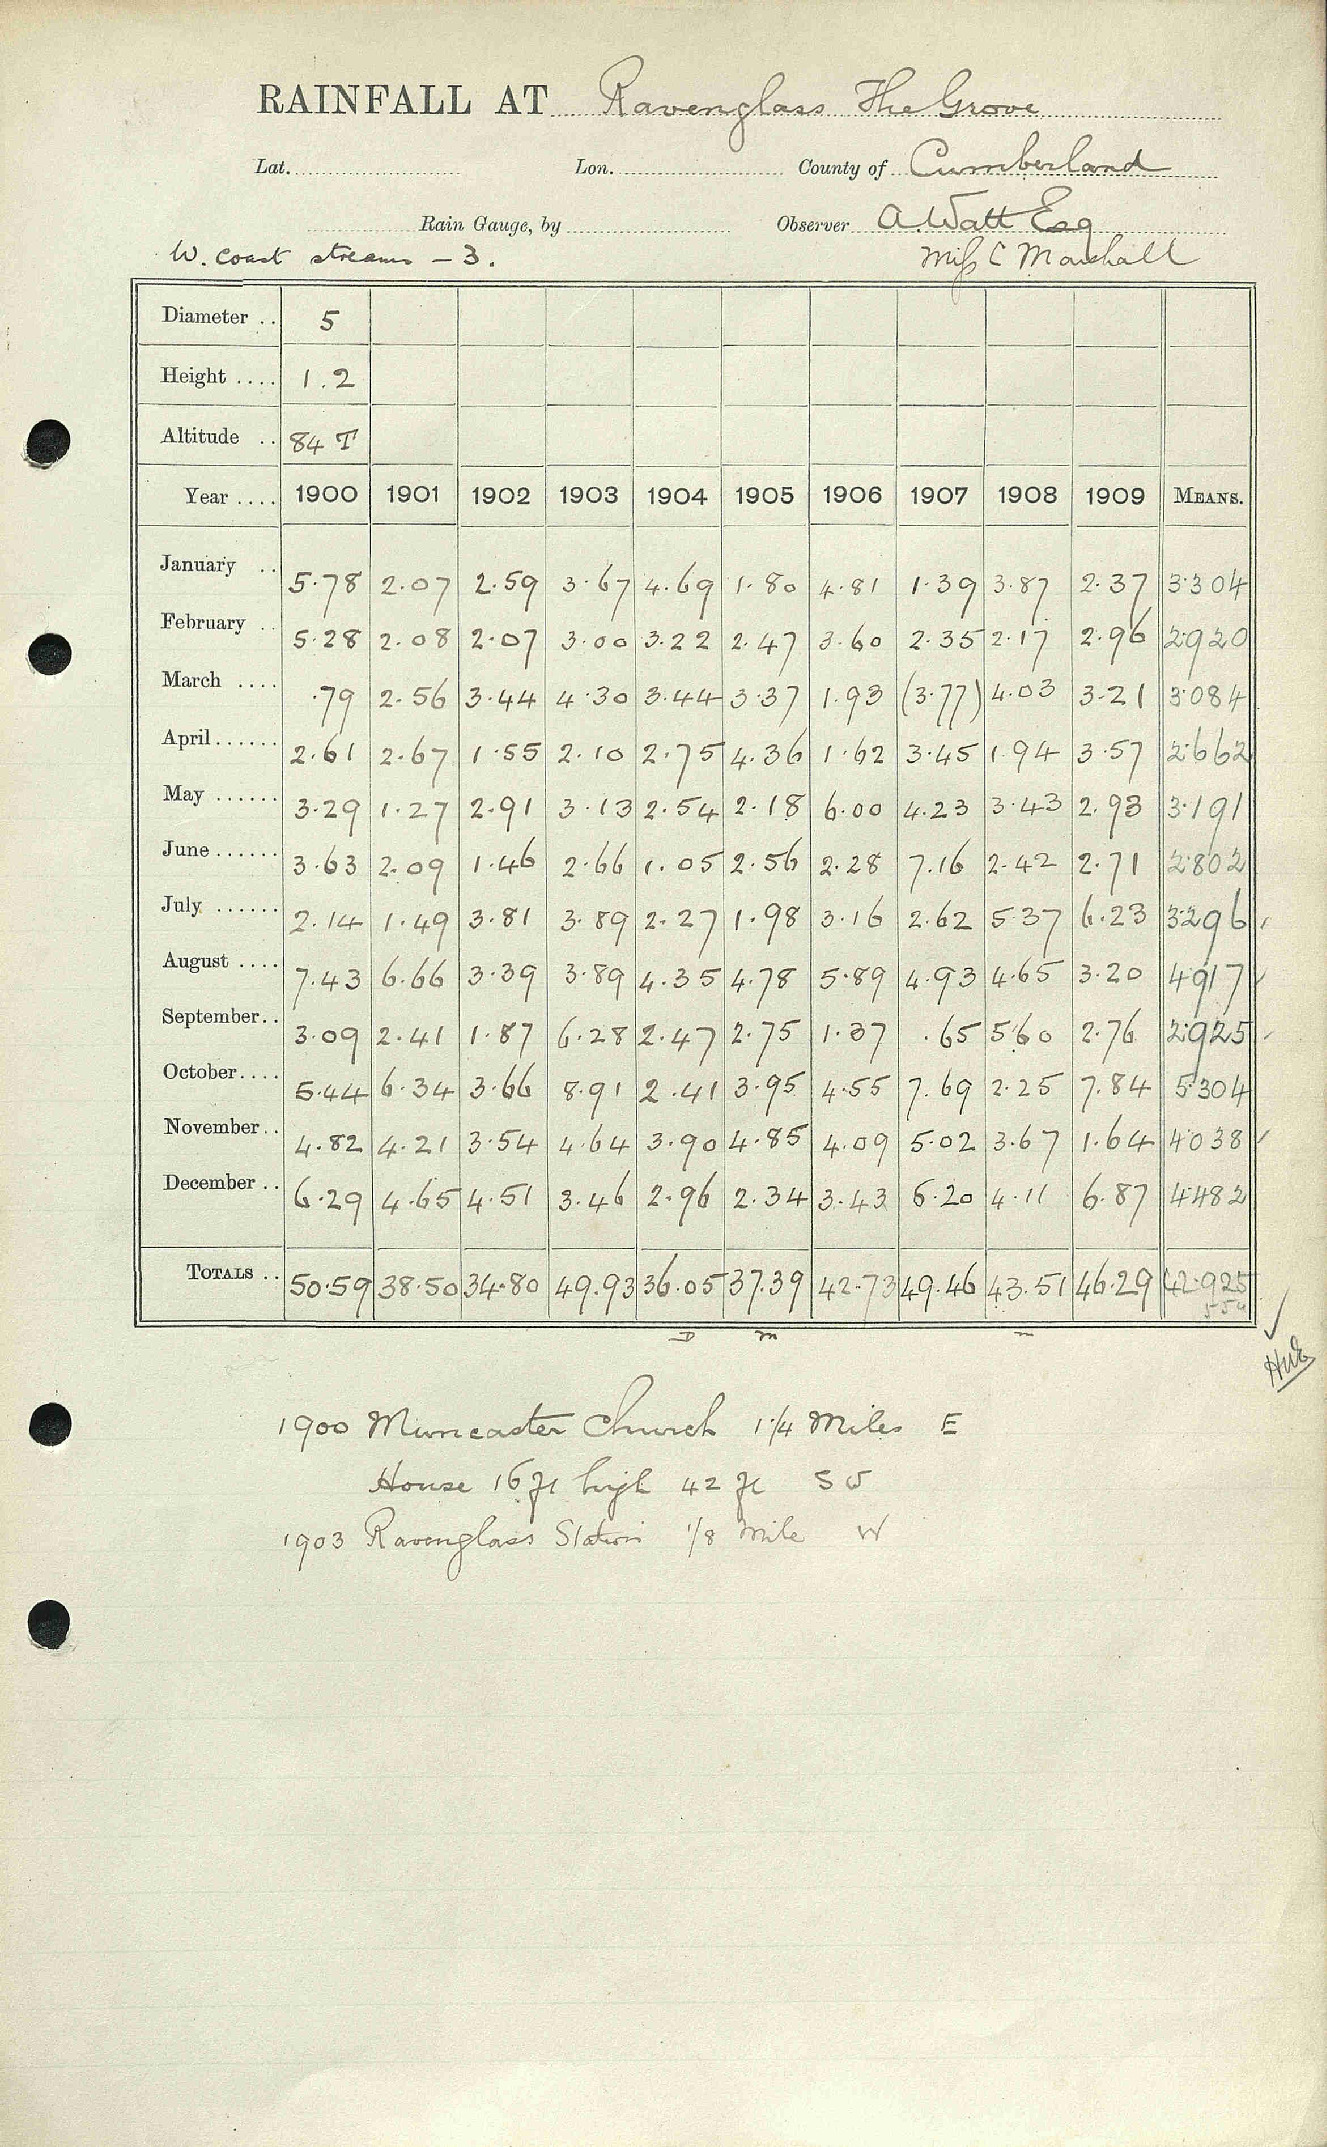 RAINFALL AT Ravenglass The Grove
Lat. Lon. County of Cumberland
Rain Gauge, by Observer A. Watt Esq
W. Coast streams - 3. Miss C Marshall
Diameter .. 5
Height .... 1.2
Altitude .. 84 T
Year .... 1900 1901 1902 1903 1904 1905 1906 1907 1908 1909 MEANS.
January .. 5.78 2.07 2.59 3.67 4.69 1.80 4.81 1.39 3.87 2.37 3.304
February .. 5.28 2.08 2.07 3.00 3.22 2.47 3.60 2.35 2.17 2.96 2.920
March .... .79 2.56 3.44 4.30 3.44 3.37 1.93 (3.77) 4.03 3.21 3.084
April...... 2.61 2.67 1.55 2.10 2.75 4.36 1.62 3.45 1.94 3.57 2.662
May ...... 3.29 1.27 2.91 3.13 2.54 2.18 6.00 4.23 3.43 2.93 3.191
June...... 3.63 2.09 1.46 2.66 1.05 2.56 2.28 7.16 2.42 2.71 2.802
July ...... 2.14 1.49 3.81 3.89 2.27 1.98 3.16 2.62 5.37 6.23 3.296
August .... 7.43 6.66 3.39 3.89 4.35 4.78 5.89 4.93 4.65 3.20 4.917
September.. 3.09 2.41 1.87 6.28 2.47 2.75 1.37 .65 5.60 2.76 2.925
October.... 5.44 6.34 3.66 8.91 2.41 3.95 4.55 7.69 2.25 7.84 5.304
November.. 4.82 4.21 3.54 4.64 3.90 4.85 4.09 5.02 3.67 1.64 4.038
December .. 6.29 4.65 4.51 3.46 2.96 2.34 3.43 6.20 4.11 6.87 4.482
TOTALS .. 50.59 38.50 34.80 49.93 36.05 37.39 42.73 49.46 43.51 46.29 42.925
D m m
1900 Muncaster Church 1 1/4 Miles E
House 16 ft high 42 ft SW
1903 Ravenglass Station 1/8 mile W